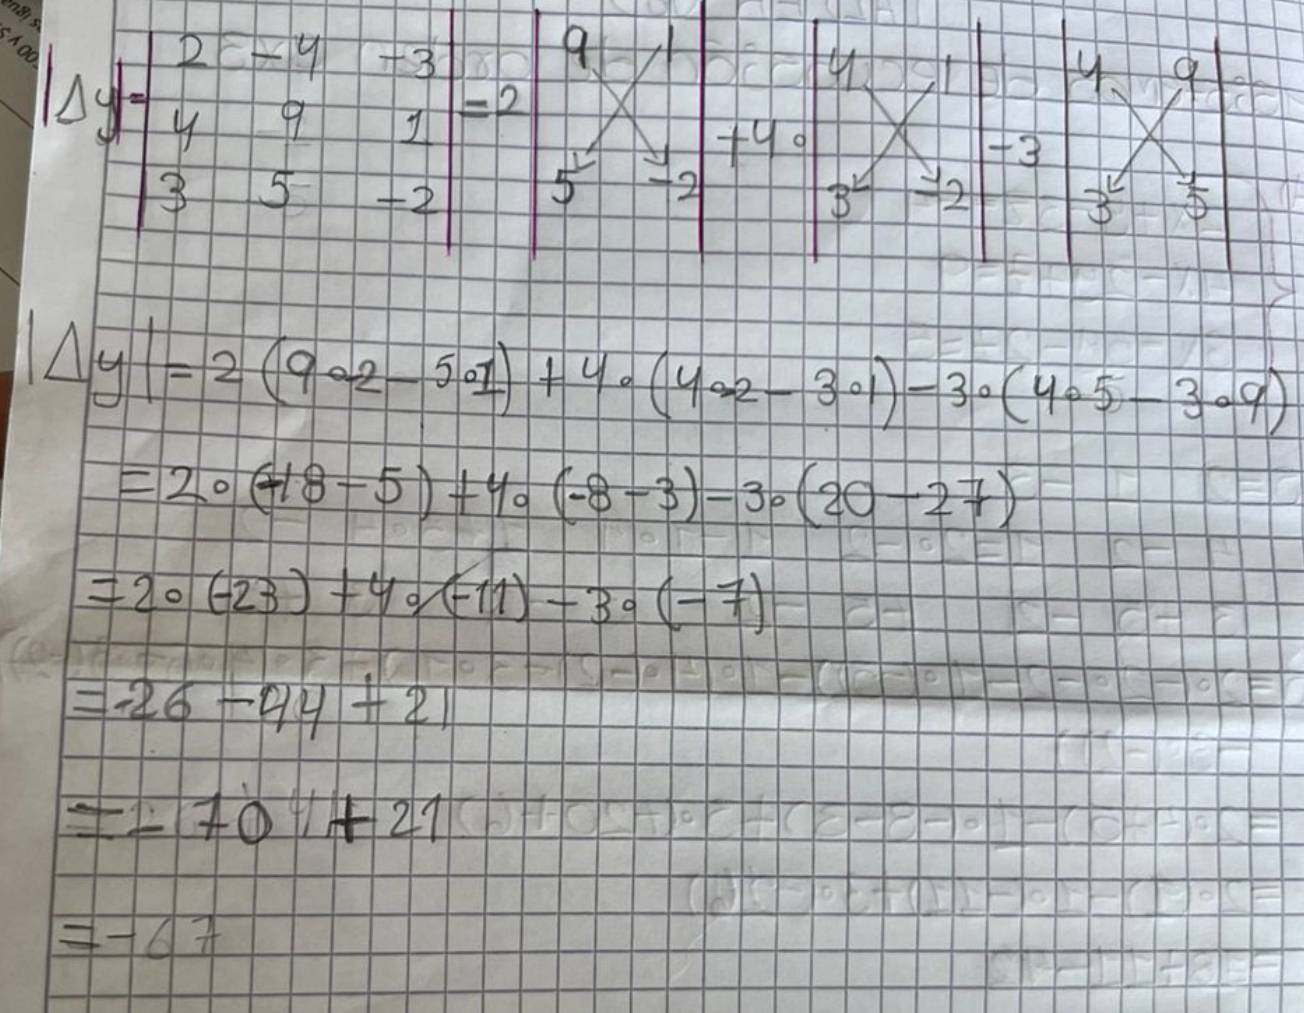 |Δy|= | 2 -4 -3 | = 2 | 9 1 | +4∘ | 4 1 | -3 | 4 9 |
4 9 1
3 5 -2 5 -2 3 -2 3 5
|Δy| = 2 (9∘-2 - 5∘1) + 4∘(4∘-2 - 3∘1) - 3∘(4∘5 - 3∘9)
= 2∘(-18 - 5) + 4∘(-8 - 3) - 3∘(20 - 27)
= 2∘(-23) + 4∘(-11) - 3∘(-7)
= -26 - 44 + 21
= - 70 + 21
= - 67